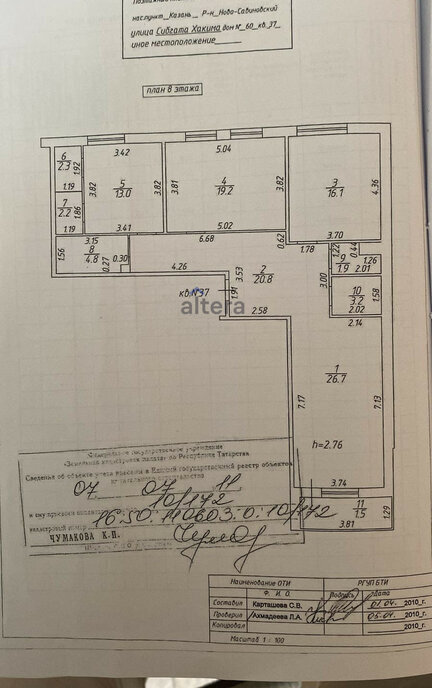 населпункт_Казань_ Р-н_Ново-Савиновский
улица Сибгата Хакима дом №_60_кв.37_
иное местоположение
план в этажа
6
2.3
1.92
3.42
5.04
1.19
3.82
5
13.0
3.82
3.81
4
19.2
3.82
3
16.1
4.36
7
2.2
1.86
1.19
3.41
5.02
3.70
1.56
3.15
8
4.8
0.27
0.30
6.68
0.62
1.78
1.22
0.44
9
1.9
1.26
2.01
4.26
3.53
2
20.8
3.00
10
3.2
1.58
кв.№37
altera
1.91
2.58
2.02
2.14
1
26.7
7.17
7.13
h=2.76
3.74
11
1.5
1.29
3.81
«Земельная кадастровая палата» по Республике Татарстан
Сведения об объекте учета внесены в Единый государственный реестр объектов
07 07 11
10/172
16:50:110603:0:10/172
ЧУМАКОВА К.П.
Наименование ОТИ РГУП БТИ
Ф. И. О. Подпись Дата
Составил Карташева С.В. 01.04. 2010_г.
Проверил Ахмадеева Л.А. 05.04. 2010_г.
Копировал 2010_г.
Масштаб 1: 100